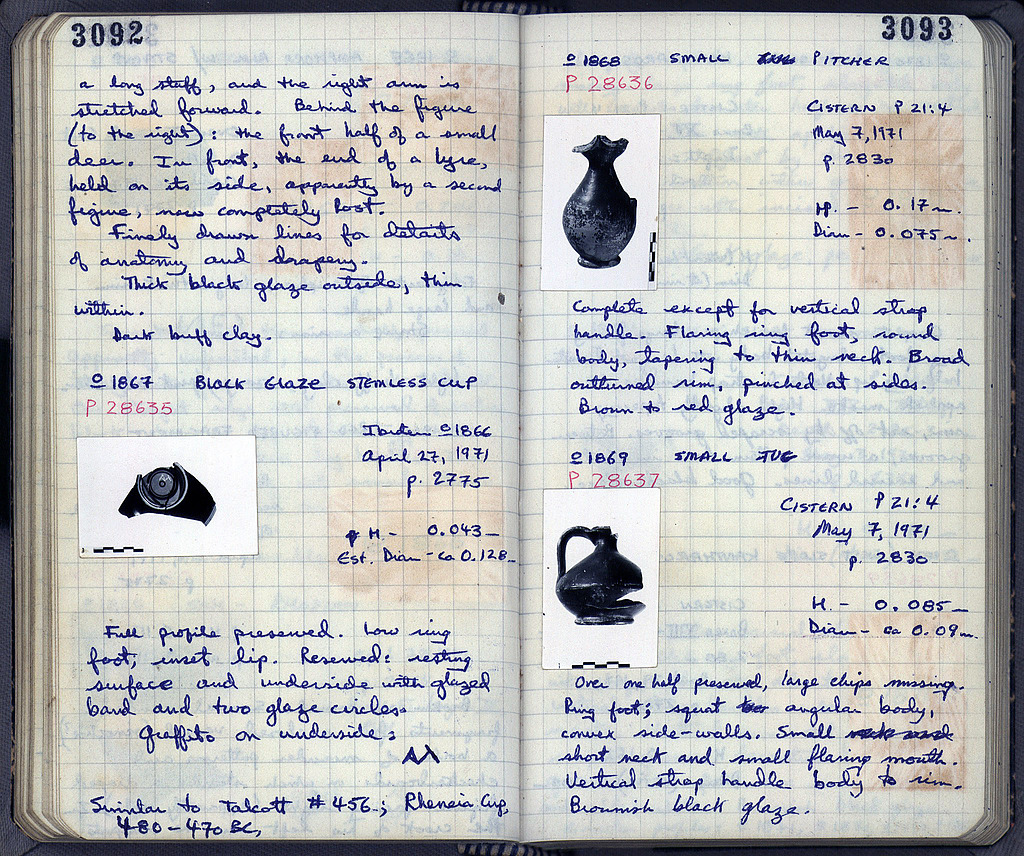 3092
a long staff, and the right arm is
stretched forward. Behind the figure
(to the right): the front half of a small
deer. In front, the end of a lyre,
held on its side, apparently by a second
figure, now completely lost.
Finely drawn lines for details
of anatomy and drapery.
Thick black glaze outside, thin
within.
Dark buff clay.
o 1867 BLACK GLAZE STEMLESS CUP
P 28635
Ibidem o 1866
April 27, 1971
p. 2775
H - 0.043
Est. Diam - ca 0.128
Full profile preserved. Low ring
foot; inset lip. Reserved: resting
surface and underside with glazed
band and two glaze circles.
Graffito on underside:
Similar to Talcott #456; Rheneia Cup,
480-470 BC,
3093
o 1868 SMALL PITCHER
P 28636
CISTERN P 21:4
May 7, 1971
p. 2830
H. - 0.17 m.
Diam - 0.075 m.
Complete except for vertical strap
handle. Flaring ring foot, round
body, tapering to thin neck. Broad
outturned rim, pinched at sides.
Brown to red glaze.
o 1869 SMALL JUG
P 28637
CISTERN P 21:4
May 7, 1971
p. 2830
H. - 0.085
Diam - ca 0.09 m.
Over one half preserved, large chips missing.
Ring foot; squat angular body,
convex side-walls. Small
short neck and small flaring mouth.
Vertical strap handle body to rim.
Brownish black glaze.